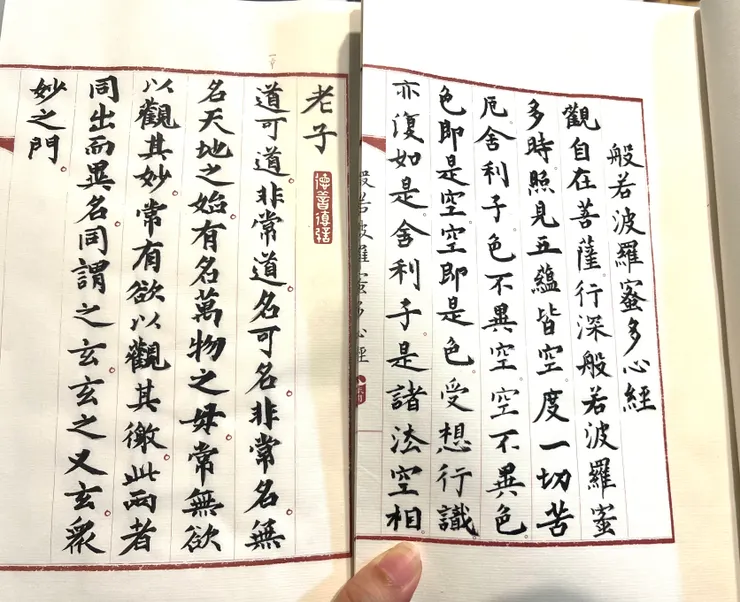 般若波羅蜜多心經
觀自在菩薩。行深般若波羅蜜
多時。照見五蘊皆空。度一切苦
厄。舍利子。色不異空。空不異色。
色即是空。空即是色。受想行識。
亦復如是。舍利子。是諸法空相。
般若波羅蜜多心經
老子
道可道非常道。名可名非常名。無
名天地之始。有名萬物之母。常無欲
以觀其妙。常有欲以觀其徼。此兩者
同出而異名同謂之玄。玄之又玄。眾
妙之門。